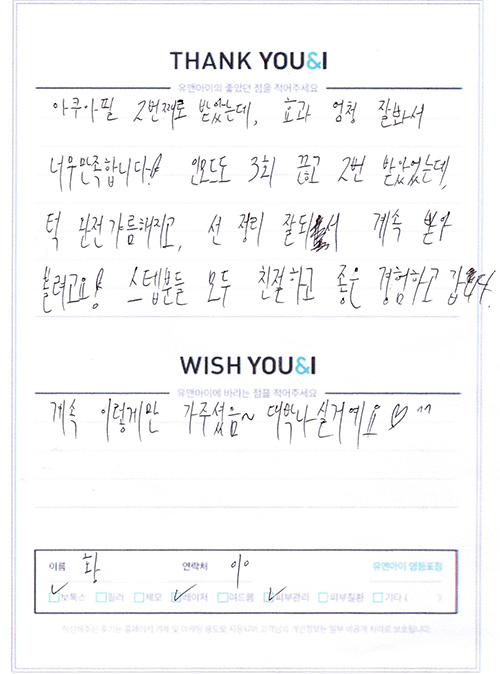 THANK YOU&I
유앤아이의 좋았던 점을 적어주세요
아쿠아필 2번째로 받았는데, 효과 엄청 잘봐서
너무만족합니다! 인모드도 3회 끊고 2번 받았었는데,
턱 완전갸름해지고, 선 정리 잘되서 계속 받아
볼려고요! 스텝분들 모두 친절하고 좋은 경험하고 갑니다.
WISH YOU&I
유앤아이에 바라는 점을 적어주세요
계속 이렇게만 가주셨음~ 대박나실거예요 ♡ ^^
이름 황 연락처 010 유앤아이 영등포점
보톡스 필러 제모 레이저 여드름 피부관리 피부질환 기타 ( )
작성해주신 후기는 홈페이지 게재 및 마케팅 용도로 사용되며 고객님의 개인정보는 일부 비공개 처리로 보호됩니다.